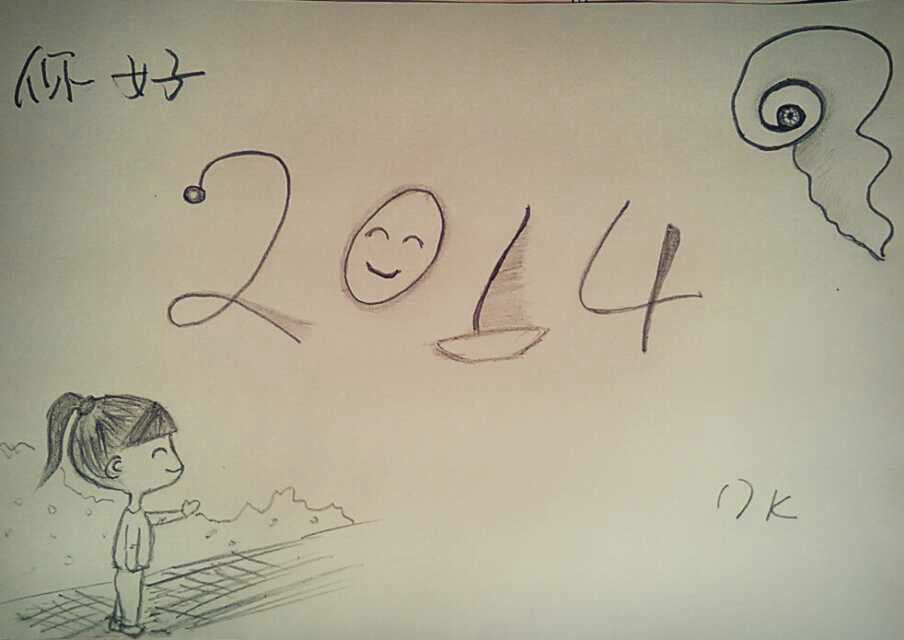 你好
2014
OK